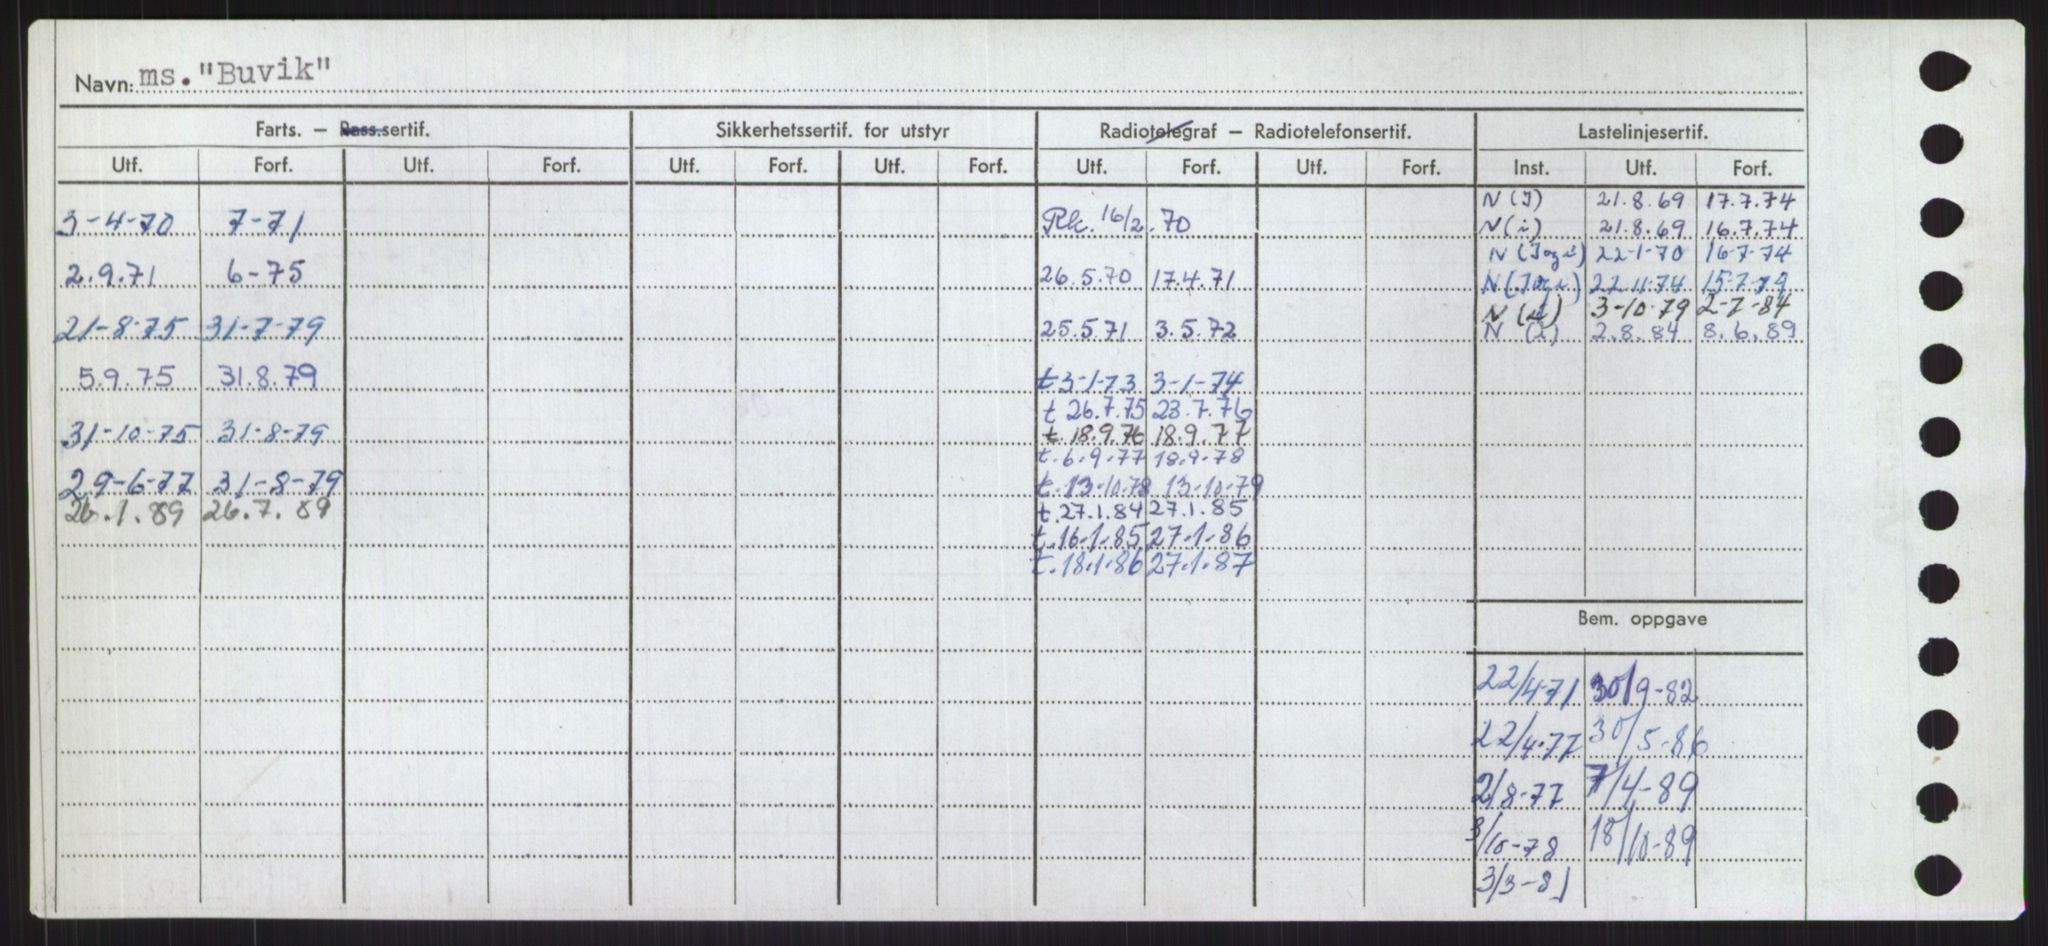 Navn: ms. "Buvik"
Farts. – Pass.sertif. Sikkerhetssertif. for utstyr Radiotelegraf – Radiotelefonsertif. Lastelinjesertif.
Utf. Forf. Utf. Forf. Utf. Forf. Utf. Forf. Utf. Forf. Utf. Forf. Inst. Utf. Forf.
N (I) 21.8.69 17.7.74
3-4-70 7-71 Rk. 16/2.70 N (i) 21.8.69 16.7.74
N (I og i) 22-1-70 16-7-74
2.9.71 6-75 26.5.70 17.4.71 N (I og i) 22.11.74 15-7-79
N (i) 3-10-79 2-7-84
21-8-75 31-7-79 25.5.71 3.5.72 N (i) 2.8.84 8.6.89
5.9.75 31.8.79 t 3-1-73 3-1-74
t 26.7.75 23.7.76
31-10-75 31-8-79 t. 18.9.76 18.9.77
t. 6.9.77 18.9.78
29-6-77 31-8-79 t. 13-10-78 13-10-79
26.1.89 26.7.89 t. 27.1.84 27.1.85
t. 16.1.85 27.1.86
t. 18.1.86 27.1.87
Bem. oppgave
22/4-71 30/9-82
22/4-77 30/5-86
2/8-77 7/4-89
3/10-78 18/10-89
3/3-81